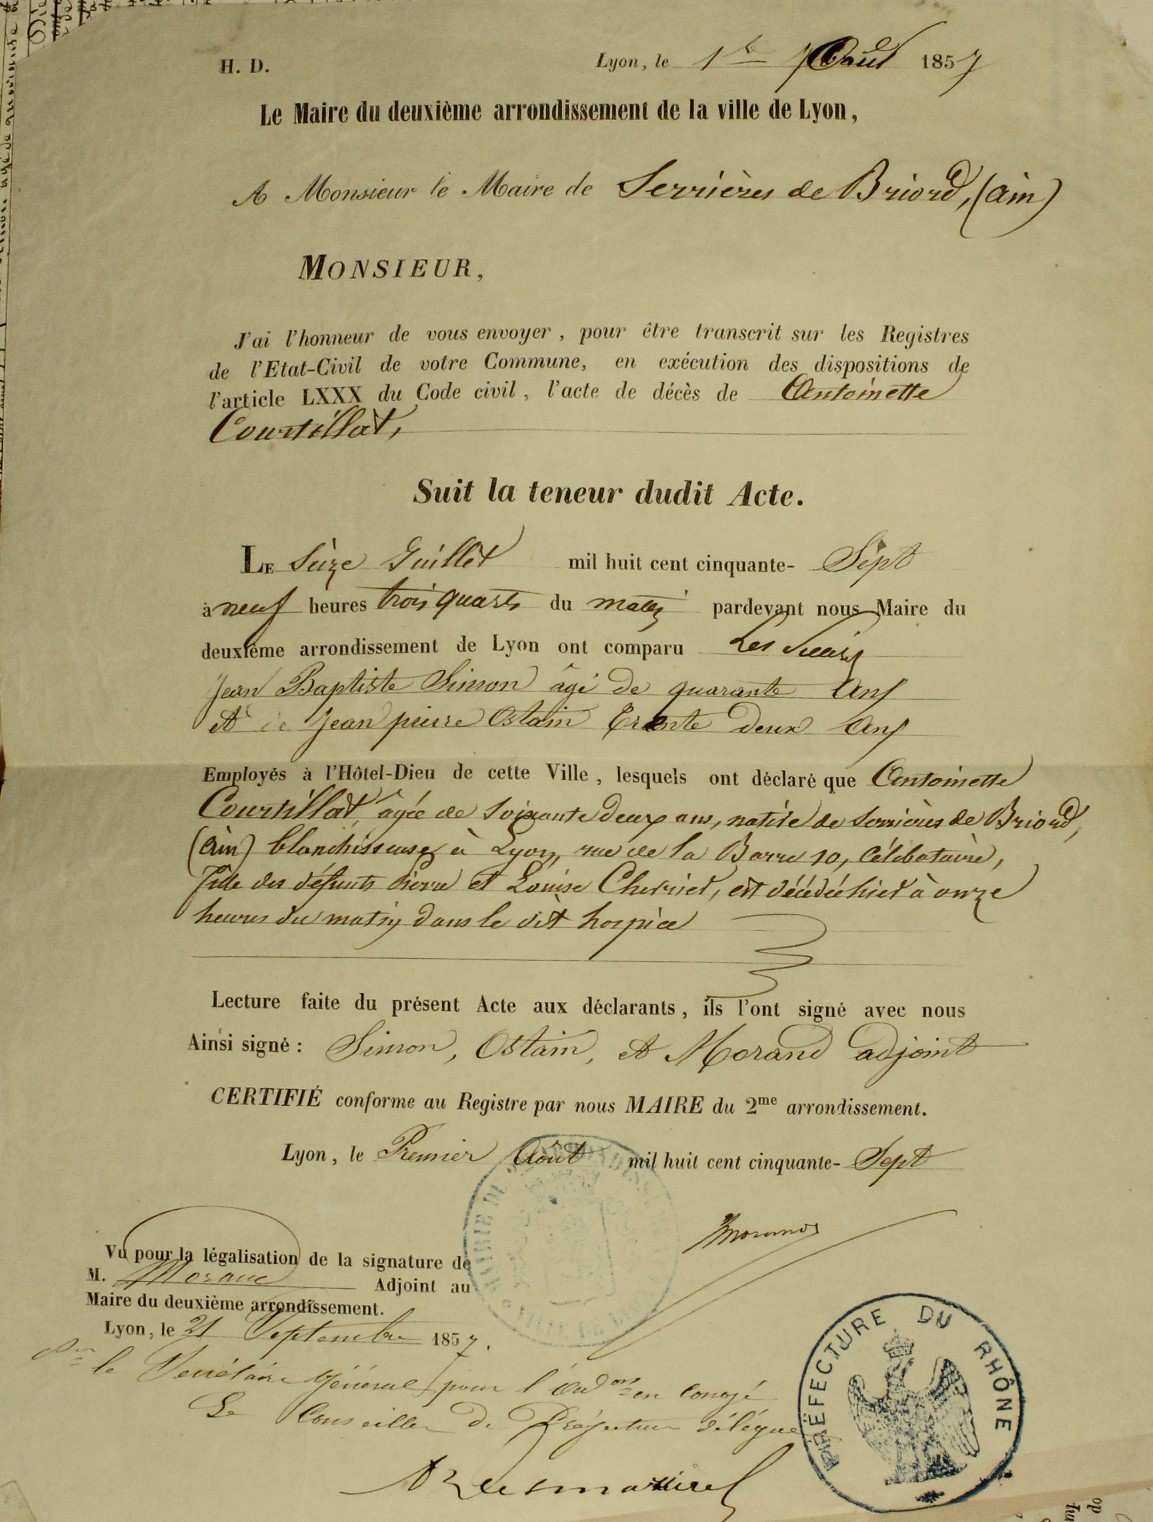 H. D. Lyon, le 1er Août 1857
Le Maire du deuxième arrondissement de la ville de Lyon,
A Monsieur le Maire de Serrières de Briord, (ain)
MONSIEUR,
J'ai l'honneur de vous envoyer, pour être transcrit sur les Registres
de l'Etat-Civil de votre Commune, en exécution des dispositions de
l'article LXXX du Code civil, l'acte de décès de Antoinette
Courtillat,
Suit la teneur dudit Acte.
LE Seize Juillet mil huit cent cinquante- Sept
à neuf heures trois quarts du matin pardevant nous Maire du
deuxième arrondissement de Lyon ont comparu Les Sieurs
Jean Baptiste Simon âgé de quarante ans
et de Jean pierre Ostain trente deux ans
Employés à l'Hôtel-Dieu de cette Ville, lesquels ont déclaré que Antoinette
Courtillat, âgée de soixante deux ans, native de serrières de Briord,
(ain) blanchisseuse à Lyon, rue de la Barre 10, célibataire,
fille des défunts Pierre et Louise Cherrier, est décédée hier à onze
heures du matin dans le dit hospice
Lecture faite du présent Acte aux déclarants, ils l'ont signé avec nous
Ainsi signé : Simon, Ostain, et Morand adjoint
CERTIFIÉ conforme au Registre par nous MAIRE du 2me arrondissement.
Lyon, le Premier Août mil huit cent cinquante- Sept
Morand
Vu pour la légalisation de la signature de
M. Morand Adjoint au
Maire du deuxième arrondissement.
Lyon, le 21 Septembre 1857.
Pr le Secrétaire Général pour l'adon en congé
Le Conseiller de Préfecture délégué
PRÉFECTURE DU RHÔNE
MAIRIE DU